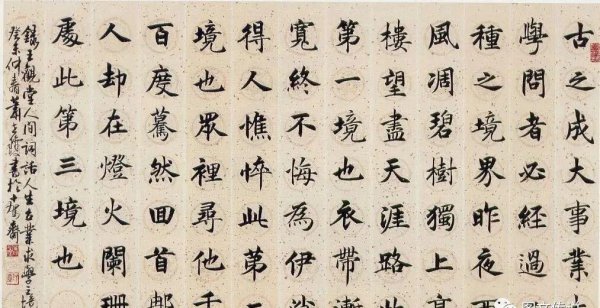 古之成大事業
學問者必經過
種之境界昨夜西
風凋碧樹獨上高
樓望盡天涯路此
第一境也衣帶漸
寬終不悔為伊消
得人憔悴此第二
境也眾裡尋他千
百度驀然回首那
人却在燈火闌珊
處此第三境也
錄王觀堂人间詞話人生
癸未 春蕭 書於 齋